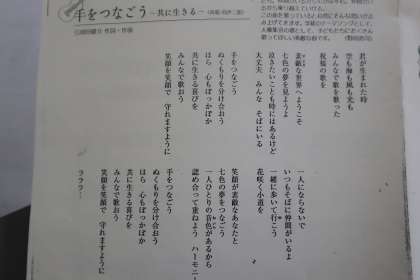 手をつなごう ～共に生きる～
作詞・作曲
君が生まれた時
空も海も風も光も
みんなで歌を歌った
祝福の歌を
素敵な世界へようこそ
七色の夢を見ようよ
泣きたいことも時にはあるけど
大丈夫 みんな そばにいる
手をつなごう
ぬくもりを分け合おう
ほら 心もぽっかぽか
共に生きる喜びを
みんなで歌おう
笑顔を笑顔で 守れますように
一人にならないで
いつもそばに仲間がいるよ
一緒に歩いて行こう
花咲く小道を
笑顔が素敵なあなたと
七色の夢をつなごう
一人ひとりの音色があるから
認め合って重ねよう ハーモニー
手をつなごう
ぬくもりを分け合おう
ほら 心もぽっかぽか
共に生きる喜びを
みんなで歌おう
笑顔を笑顔で 守れますように
ラララ…